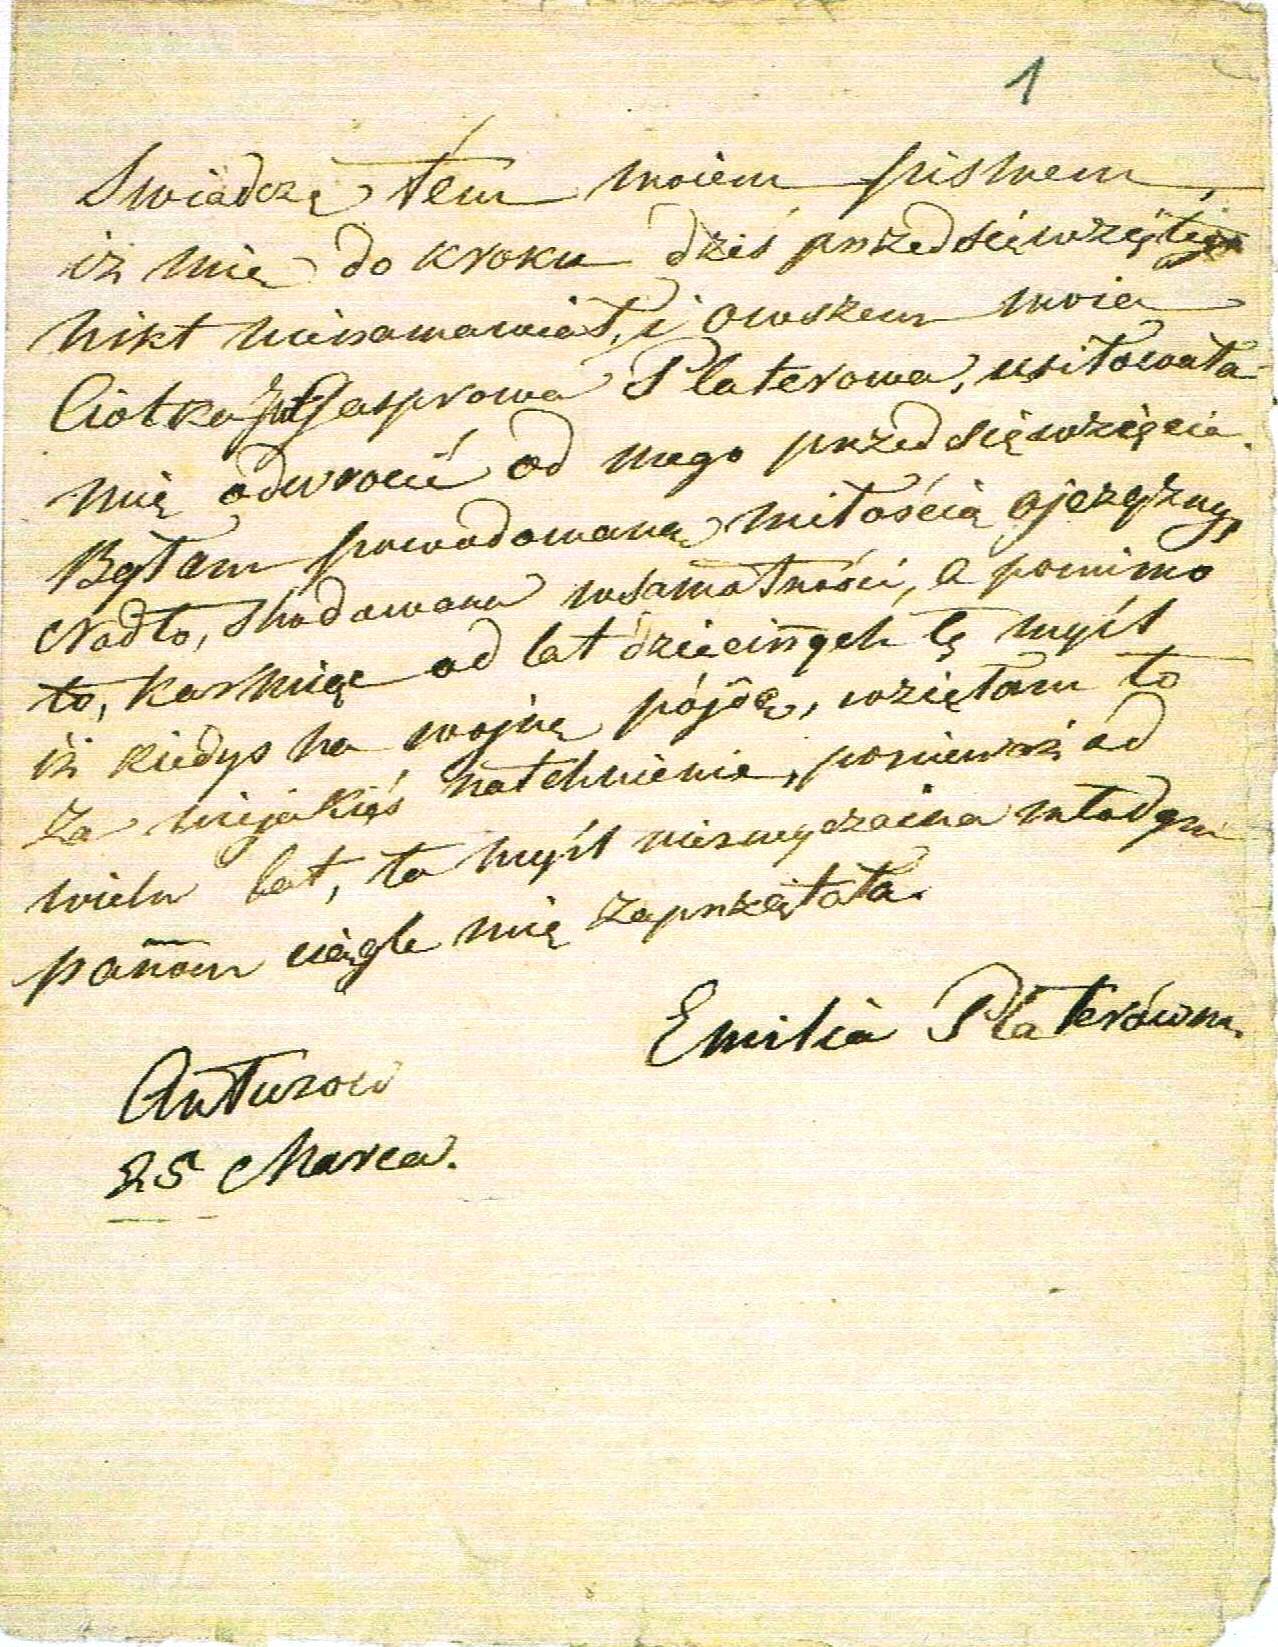 1
Swiadczę tém moiem pismem,
iż mię do kroku dziś przedsięwziętego
nikt nienamawiał, i owszem moia
Ciotka Gasprowa Platerowa, usiłowała
mię odwrocić od mego przedsięwzięcia.
Byłam powodowaną miłością ojczyzny,
Nadto, shodowana w samotności, a pomimo
to, karmiąc od lat dziecinnych tę myśl
iż kiedys na wojnę pójdę, wzięłam to
za niejakieś natchnienie, ponieważ od
wielu lat, ta myśl niezwyczaina młodym
pannom ciągle mię zaprzątała.
Emilia Platerówna.
Antuzow
25 Marca.